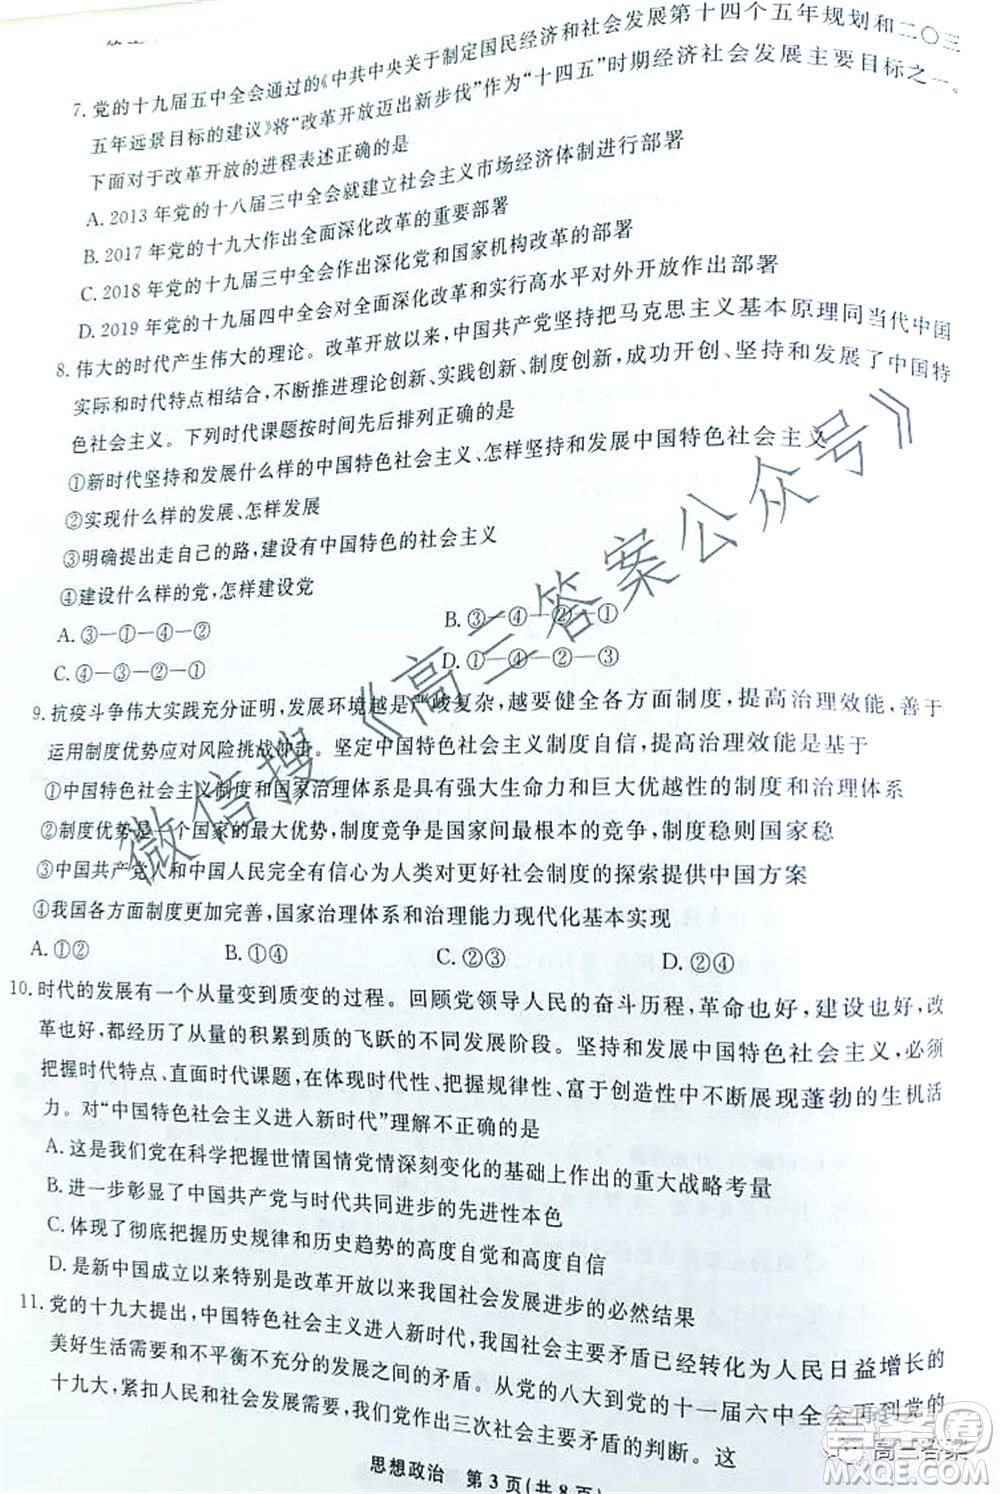 7. 党的十九届五中全会通过的《中共中央关于制定国民经济和社会发展第十四个五年规划和二〇三
五年远景目标的建议》将“改革开放迈出新步伐”作为“十四五”时期经济社会发展主要目标之一。
下面对于改革开放的进程表述正确的是
A. 2013 年党的十八届三中全会就建立社会主义市场经济体制进行部署
B. 2017 年党的十九大作出全面深化改革的重要部署
C. 2018 年党的十九届三中全会作出深化党和国家机构改革的部署
D. 2019 年党的十九届四中全会对全面深化改革和实行高水平对外开放作出部署
8. 伟大的时代产生伟大的理论。改革开放以来,中国共产党坚持把马克思主义基本原理同当代中国
实际和时代特点相结合,不断推进理论创新、实践创新、制度创新,成功开创、坚持和发展了中国特
色社会主义。下列时代课题按时间先后排列正确的是
①新时代坚持和发展什么样的中国特色社会主义、怎样坚持和发展中国特色社会主义
②实现什么样的发展、怎样发展
③明确提出走自己的路,建设有中国特色的社会主义
④建设什么样的党,怎样建设党
A. ③—①—④—②
B. ③—④—②—①
C. ③—④—②—①
D. ①—④—②—③
9. 抗疫斗争伟大实践充分证明,发展环境越是严峻复杂,越要健全各方面制度,提高治理效能,善于
运用制度优势应对风险挑战冲击。坚定中国特色社会主义制度自信,提高治理效能是基于
①中国特色社会主义制度和国家治理体系是具有强大生命力和巨大优越性的制度和治理体系
②制度优势是一个国家的最大优势,制度竞争是国家间最根本的竞争,制度稳则国家稳
③中国共产党人和中国人民完全有信心为人类对更好社会制度的探索提供中国方案
④我国各方面制度更加完善,国家治理体系和治理能力现代化基本实现
A. ①②
B. ①④
C. ②③
D. ②④
10. 时代的发展有一个从量变到质变的过程。回顾党领导人民的奋斗历程,革命也好,建设也好,改
革也好,都经历了从量的积累到质的飞跃的不同发展阶段。坚持和发展中国特色社会主义,必须
把握时代特点、直面时代课题,在体现时代性、把握规律性、富于创造性中不断展现蓬勃的生机活
力。对“中国特色社会主义进入新时代”理解不正确的是
A. 这是我们党在科学把握世情国情党情深刻变化的基础上作出的重大战略考量
B. 进一步彰显了中国共产党与时代共同进步的先进性本色
C. 体现了彻底把握历史规律和历史趋势的高度自觉和高度自信
D. 是新中国成立以来特别是改革开放以来我国社会发展进步的必然结果
11. 党的十九大提出,中国特色社会主义进入新时代,我国社会主要矛盾已经转化为人民日益增长的
美好生活需要和不平衡不充分的发展之间的矛盾。从党的八大到党的十一届六中全会再到党的
十九大,紧扣人民和社会发展需要,我们党作出三次社会主要矛盾的判断。这
思想政治 第 3 页(共 8 页)
微信搜《高三答案公众号》
高三答案